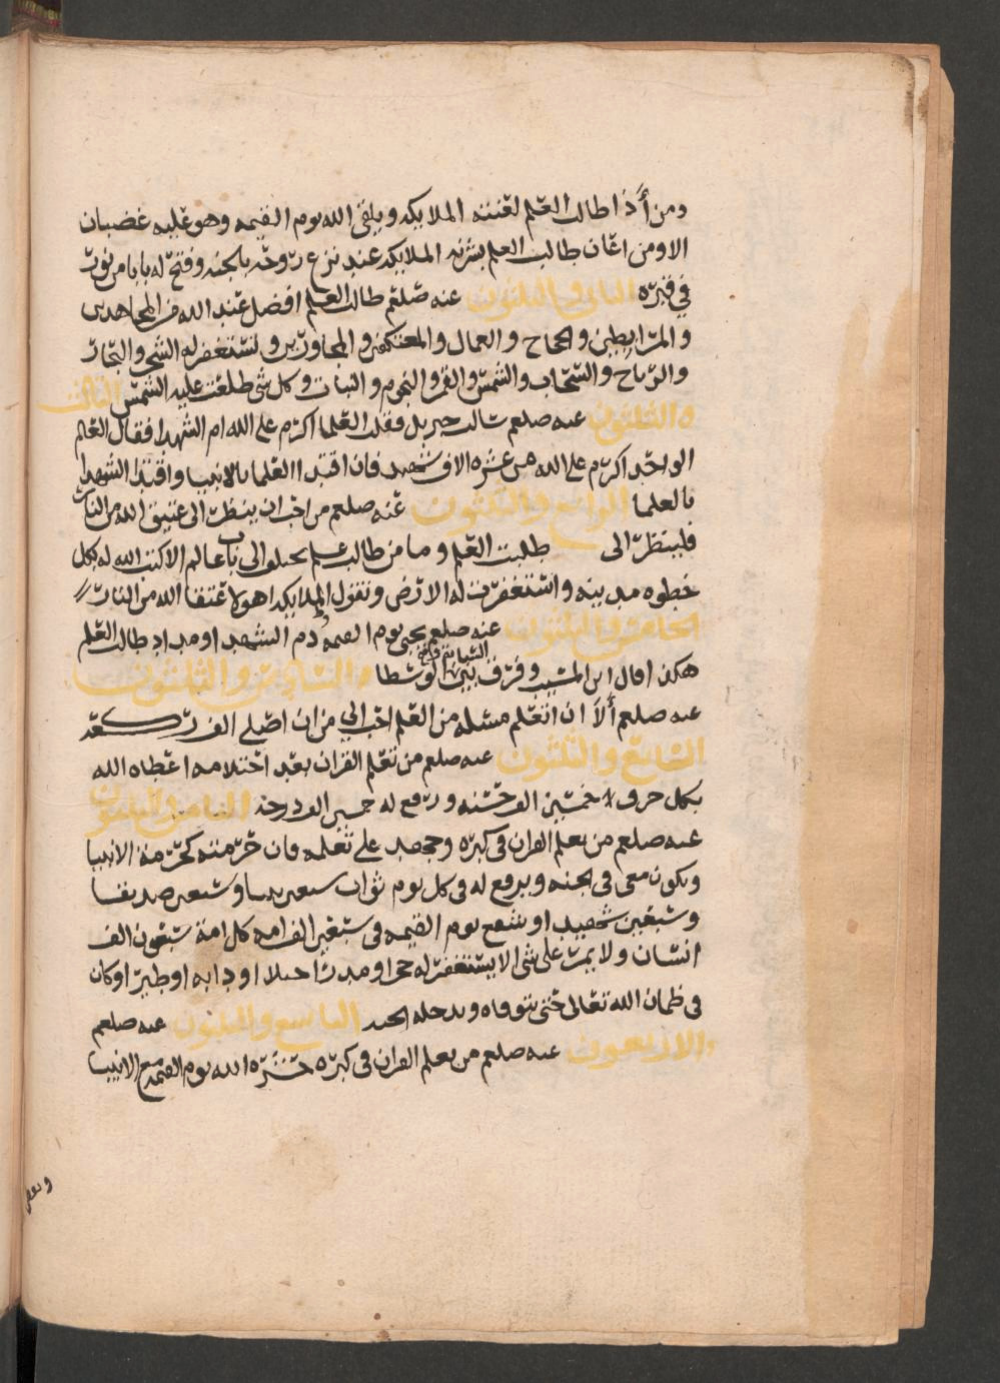 ومن أذا طالب العلم لعنته الملايكه ويلقى الله يوم القيمه وهو عليه غضبان
الا ومن اعان طالب العلم بشرته الملايكه عند نزع روحه بالجنه وفتح له بابا من نور
في قبره الثاني والثلثون عنه صلعم طالب العلم افضل عند الله من المجاهدين
والمرابطين والحجاج والعمال والمعتكفين والمجاورين وتستغفر له الشجر والبحار
والرياح والسحاب والشمس والقمر والنجوم والنبات وكل شي طلعت عليه الشمس الثالث
والثلثون عنه صلعم سالت جبريل فقلت العلما اكرم على الله ام الشهدا فقال العالم
الواحد اكرم على الله من عشره الاف شهيد فان اقتدا العلما بالانبيا واقتدا الشهدا
بالعلما الرابع والثلثون عنه صلعم من احب ان ينظر الى عتيق الله من النار
فلينظر الى طلبت العلم وما من طالب علم يختلف الى باب عالم الا كتب الله له بكل
خطوه مدينه واستغفرت له الارض وتقول الملايكه اهولا عتقا الله من النار
الخامس والثلثون عنه صلعم يجي يوم القيمه دم الشهيد او مداد طالب العلم
هكذا قال ابن المسيب وفرق بين لوسطا السادس والثلثون
عنه صلعم ألا ان اتعلم مسئله من العلم احب الي من ان اصلي الف ركعه
السابع والثلثون عنه صلعم من تعلم القران بعد احتلامه اعطاه الله
بكل حرف خمسين الف حسنه ورفع له خمسين الف درجه الثامن والثلثون
عنه صلعم من تعلم القران في كبره وحرصه على تعلمه فان حرمته كحرمة الانبيا
ويكون معي في الجنه ويرفع له في كل يوم ثواب سبعين نبيا وسبعين صديقا
وسبعين شهيدا ويشفع يوم القيمه في سبعين الف امه كل امة سبعون الف
انسان ولا يمر على شي الا يستغفر له حجر او مدر او جبلا او دابه او طير او كان
في ضمان الله تعالى حتى يتوفاه ويدخله الجنه التاسع والثلثون عنه صلعم
الاربعون عنه صلعم من تعلم القران في كبره حشره الله يوم القيمه مع الانبيا